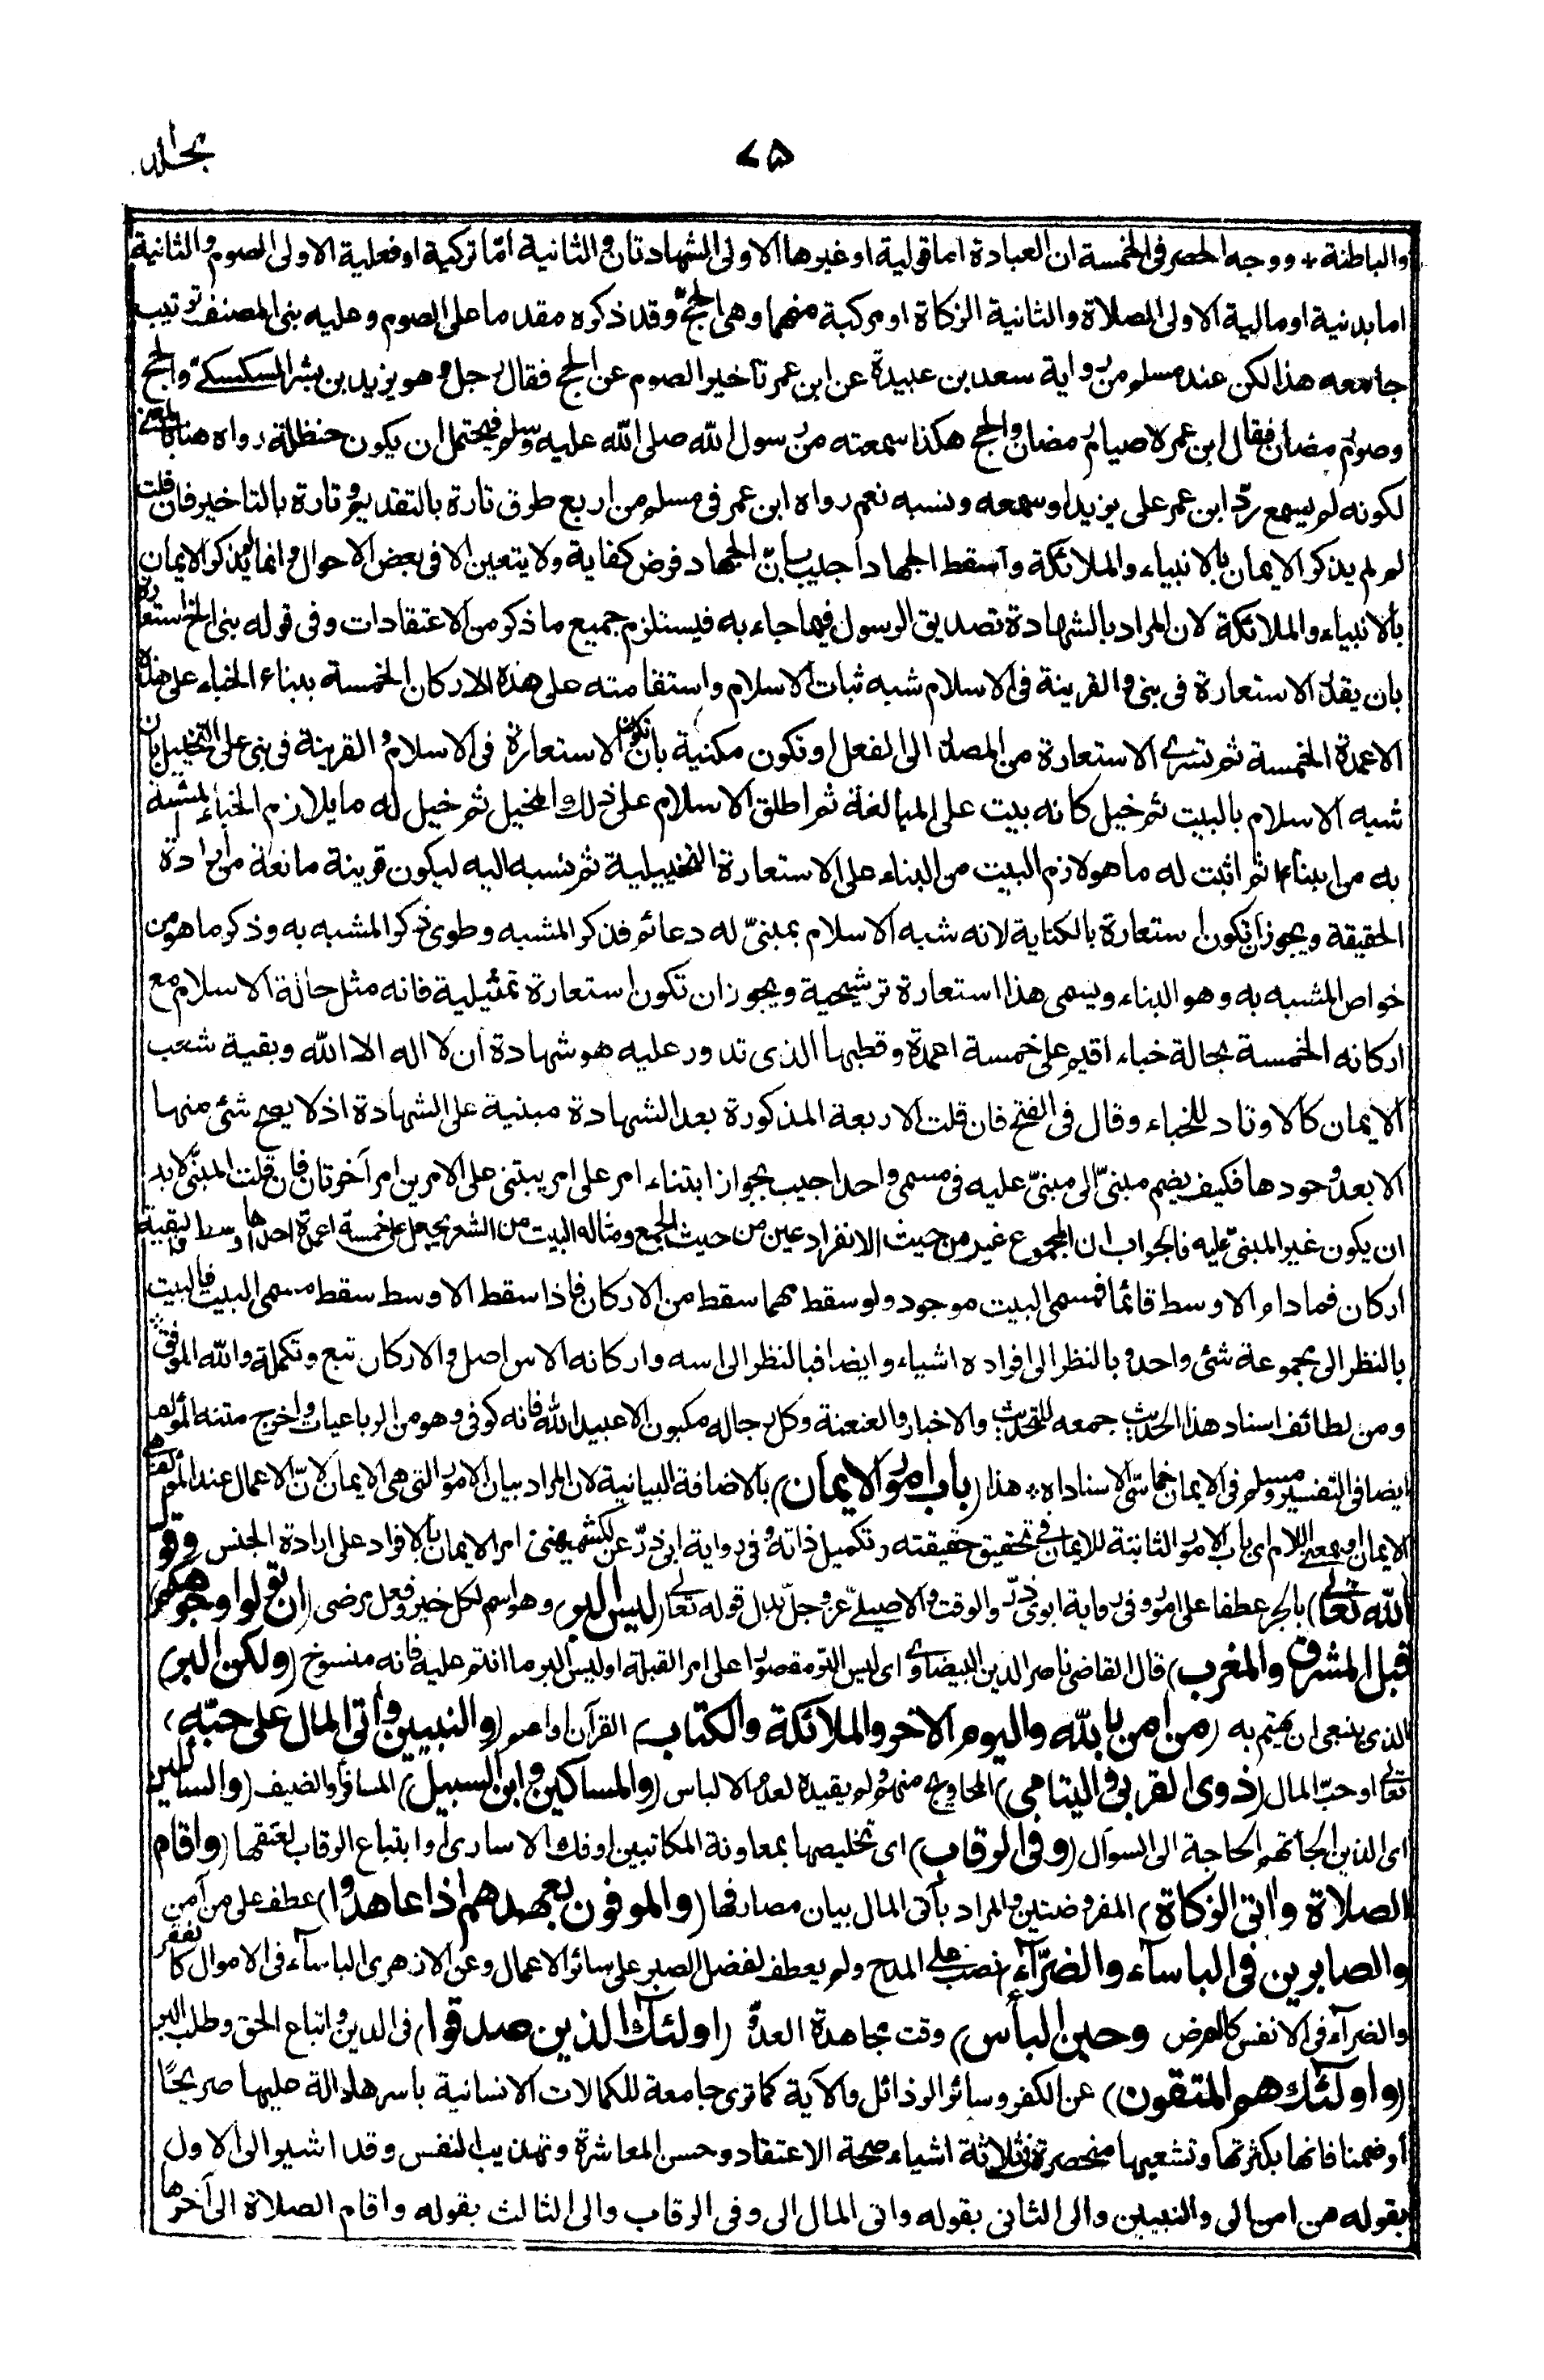 ٧٥
جلد١
والباطنة * ووجه الحصر فى الخمسة ان العبادة اما قولية او غيرها الاولى الشهادتان والثانية امّا تركية او فعلية الاولى الصوم والثانية
اما بدنية او مالية الاولى الصلاة والثانية الزكاة او مركبة منهما وهى الحجّ وقد ذكره مقدما على الصوم وعليه بنى المصنف ترتيب
جامعه هذا لكن عند مسلم من رواية سعد بن عبيدة عن ابن عمر تأخير الصوم عن الحج فقال رجل وهو يزيد بن بشر السكسكىّ والحج
وصوم رمضان فقال ابن عمر لا صيام رمضان والحج هكذا سمعته من رسول الله صلى الله عليه وسلم فيحتمل ان يكون حنظلة رواه هنا بالمعنى
لكونه لم يسمع ردّ ابن عمر على يزيد او سمعه ونسيه نعم رواه ابن عمر فى مسلم من اربع طرق تارة بالتقديم وتارة بالتاخير فان قلت
لم لم يذكر الايمان بالانبياء والملائكة وأسقط الجهاد أجيب بأنّ الجهاد فرض كفاية ولا يتعين الا فى بعض الاحوال وانما لم يذكر الايمان
بالانبياء والملائكة لان المراد بالشهادة تصديق الرسول فيما جاء به فيستلزم جميع ما ذكر من الاعتقادات وفى قوله بنى الخ استعارة
بان يقدّر الاستعارة فى بنى والقرينة فى الاسلام شبه ثبات الاسلام واستقامته على هذه الاركان الخمسة ببناء الخباء على هذه
الاعمدة الخمسة ثم تسرى الاستعارة من المصدر الى الفعل او تكون مكنية بأن تكون الاستعارة فى الاسلام والقرينة فى بنى على التخييل بأن
شبه الاسلام بالبيت ثم خيل كانه بيت على المبالغة ثم اطلق الاسلام على ذلك المخيل ثم خيل له ما يلازم الخباء المشبه
به من البناء ثم اثبت له ما هو لازم البيت من البناء على الاستعارة التخييلية ثم نسبه اليه ليكون قرينة مانعة من ارادة
الحقيقة ويجوز ان تكون استعارة بالكناية لانه شبه الاسلام بمبنىّ له دعائم فذكر المشبه وطوى ذكر المشبه به وذكر ما هو من
خواص المشبه به وهو البناء ويسمى هذا استعارة ترشيحية ويجوز ان تكون استعارة تمثيلية فانه مثل حالة الاسلام مع
اركانه الخمسة بحالة خباء اقيم على خمسة اعمدة وقطبها الذى تدور عليه هو شهادة أن لا اله الا الله وبقية شعب
الايمان كالاوتاد للخباء وقال فى الفتح فان قلت الاربعة المذكورة بعد الشهادة مبنية على الشهادة اذ لا يصح شئ منها
الا بعد وجودها فكيف يضم مبنىّ الى مبنىّ عليه فى مسمى واحد اجيب بجواز ابتناء امر على امر يبتنى على الامرين امر آخر فان قلت المبنىّ لابد
ان يكون غير المبنىّ عليه فالجواب ان المجموع غير من حيث الانفراد عين من حيث الجمع ومثاله البيت من الشعر يجعل على خمسة اعمدة احدها اوسط والبقية
اركان فما دام الاوسط قائما فمسمى البيت موجود ولو سقط مهما سقط من الاركان فاذا سقط الاوسط سقط مسمى البيت فالبيت
بالنظر الى مجموعة شئ واحد وبالنظر الى افراده اشياء وايضا فبالنظر الى اسه واركانه الاس اصل والاركان تبع وتكملة والله الموفق
ومن لطائف اسناد هذا الحديث جمعه للتحديث والاخبار والعنعنة وكل رجاله مكيون الا عبيد الله فانه كوفى وهو من الرباعيات واخرج متنه المؤلف
ايضا فى التفسير ومسلم فى الايمان خماسىّ الاسناد اه * هذا (باب امور الايمان) بالاضافة البيانية لان المراد بيان الامور التى هى الايمان لانّ الاعمال عند المؤلف هى
الايمان او بمعنى اللام اى باب الامور الثابتة للايمان فى تحقيق حقيقته وتكميل ذاته وفى رواية ابى ذرّ عن الكشميهنىّ امر الايمان بالافراد على ارادة الجنس (وقول
الله تعالى) بالجر عطفا على امور وفى رواية ابوى ذرّ والوقت والاصيلىّ عز وجل بدل قوله تعالى (ليس البر) وهو اسم لكل خير وفعل مرضى (ان تولوا وجوهكم
قبل المشرق والمغرب) قال القاضى ناصر الدين البيضاوى اى ليس البرّ مقصورا على امر القبلة او ليس البر ما انتم عليه فانه منسوخ (ولكن البر)
الذى ينبغى ان يهتم به (من آمن بالله واليوم الاخر والملائكة والكتاب) القرآن او اعم (والنبيين وآتى المال على حبّه)
تعالى او حبّ المال (ذوى القربى واليتامى) المحاويج منهم ولم يقيده لعدم الالباس (والمساكين وابن السبيل) المسافر أو الضيف (والسائلين)
اى الذين الجأتهم الحاجة الى السؤال (وفى الرقاب) اى تخليصها بمعاونة المكاتبين او فك الاسارى او ابتياع الرقاب لعتقها (واقام
الصلاة وآتى الزكاة) المفروضتين والمراد بآتى المال بيان مصارفها (والموفون بعهدهم اذا عاهدوا) عطف على من آمن
والصابرين فى البأساء والضرّاء) نصب على المدح ولم يعطف لفضل الصبر على سائر الاعمال وعن الازهرى البأساء فى الاموال كالفقر
والضرآء فى الانفس كالمرض وحين البأس) وقت مجاهدة العدوّ (اولئك الذين صدقوا) فى الدين واتباع الحق وطلب البر
(واولئك هم المتقون) عن الكفر وسائر الرذائل والآية كما ترى جامعة للكمالات الانسانية باسرها دالة عليها صريحًا
أو ضمنا فانها بكثرتها وتشعبها منحصرة فى ثلاثة اشياء صحة الاعتقاد وحسن المعاشرة وتهذيب النفس وقد اشير الى الاول
بقوله من امن الى والنبيين والى الثانى بقوله واتى المال الى وفى الرقاب والى الثالث بقوله واقام الصلاة الى آخرها